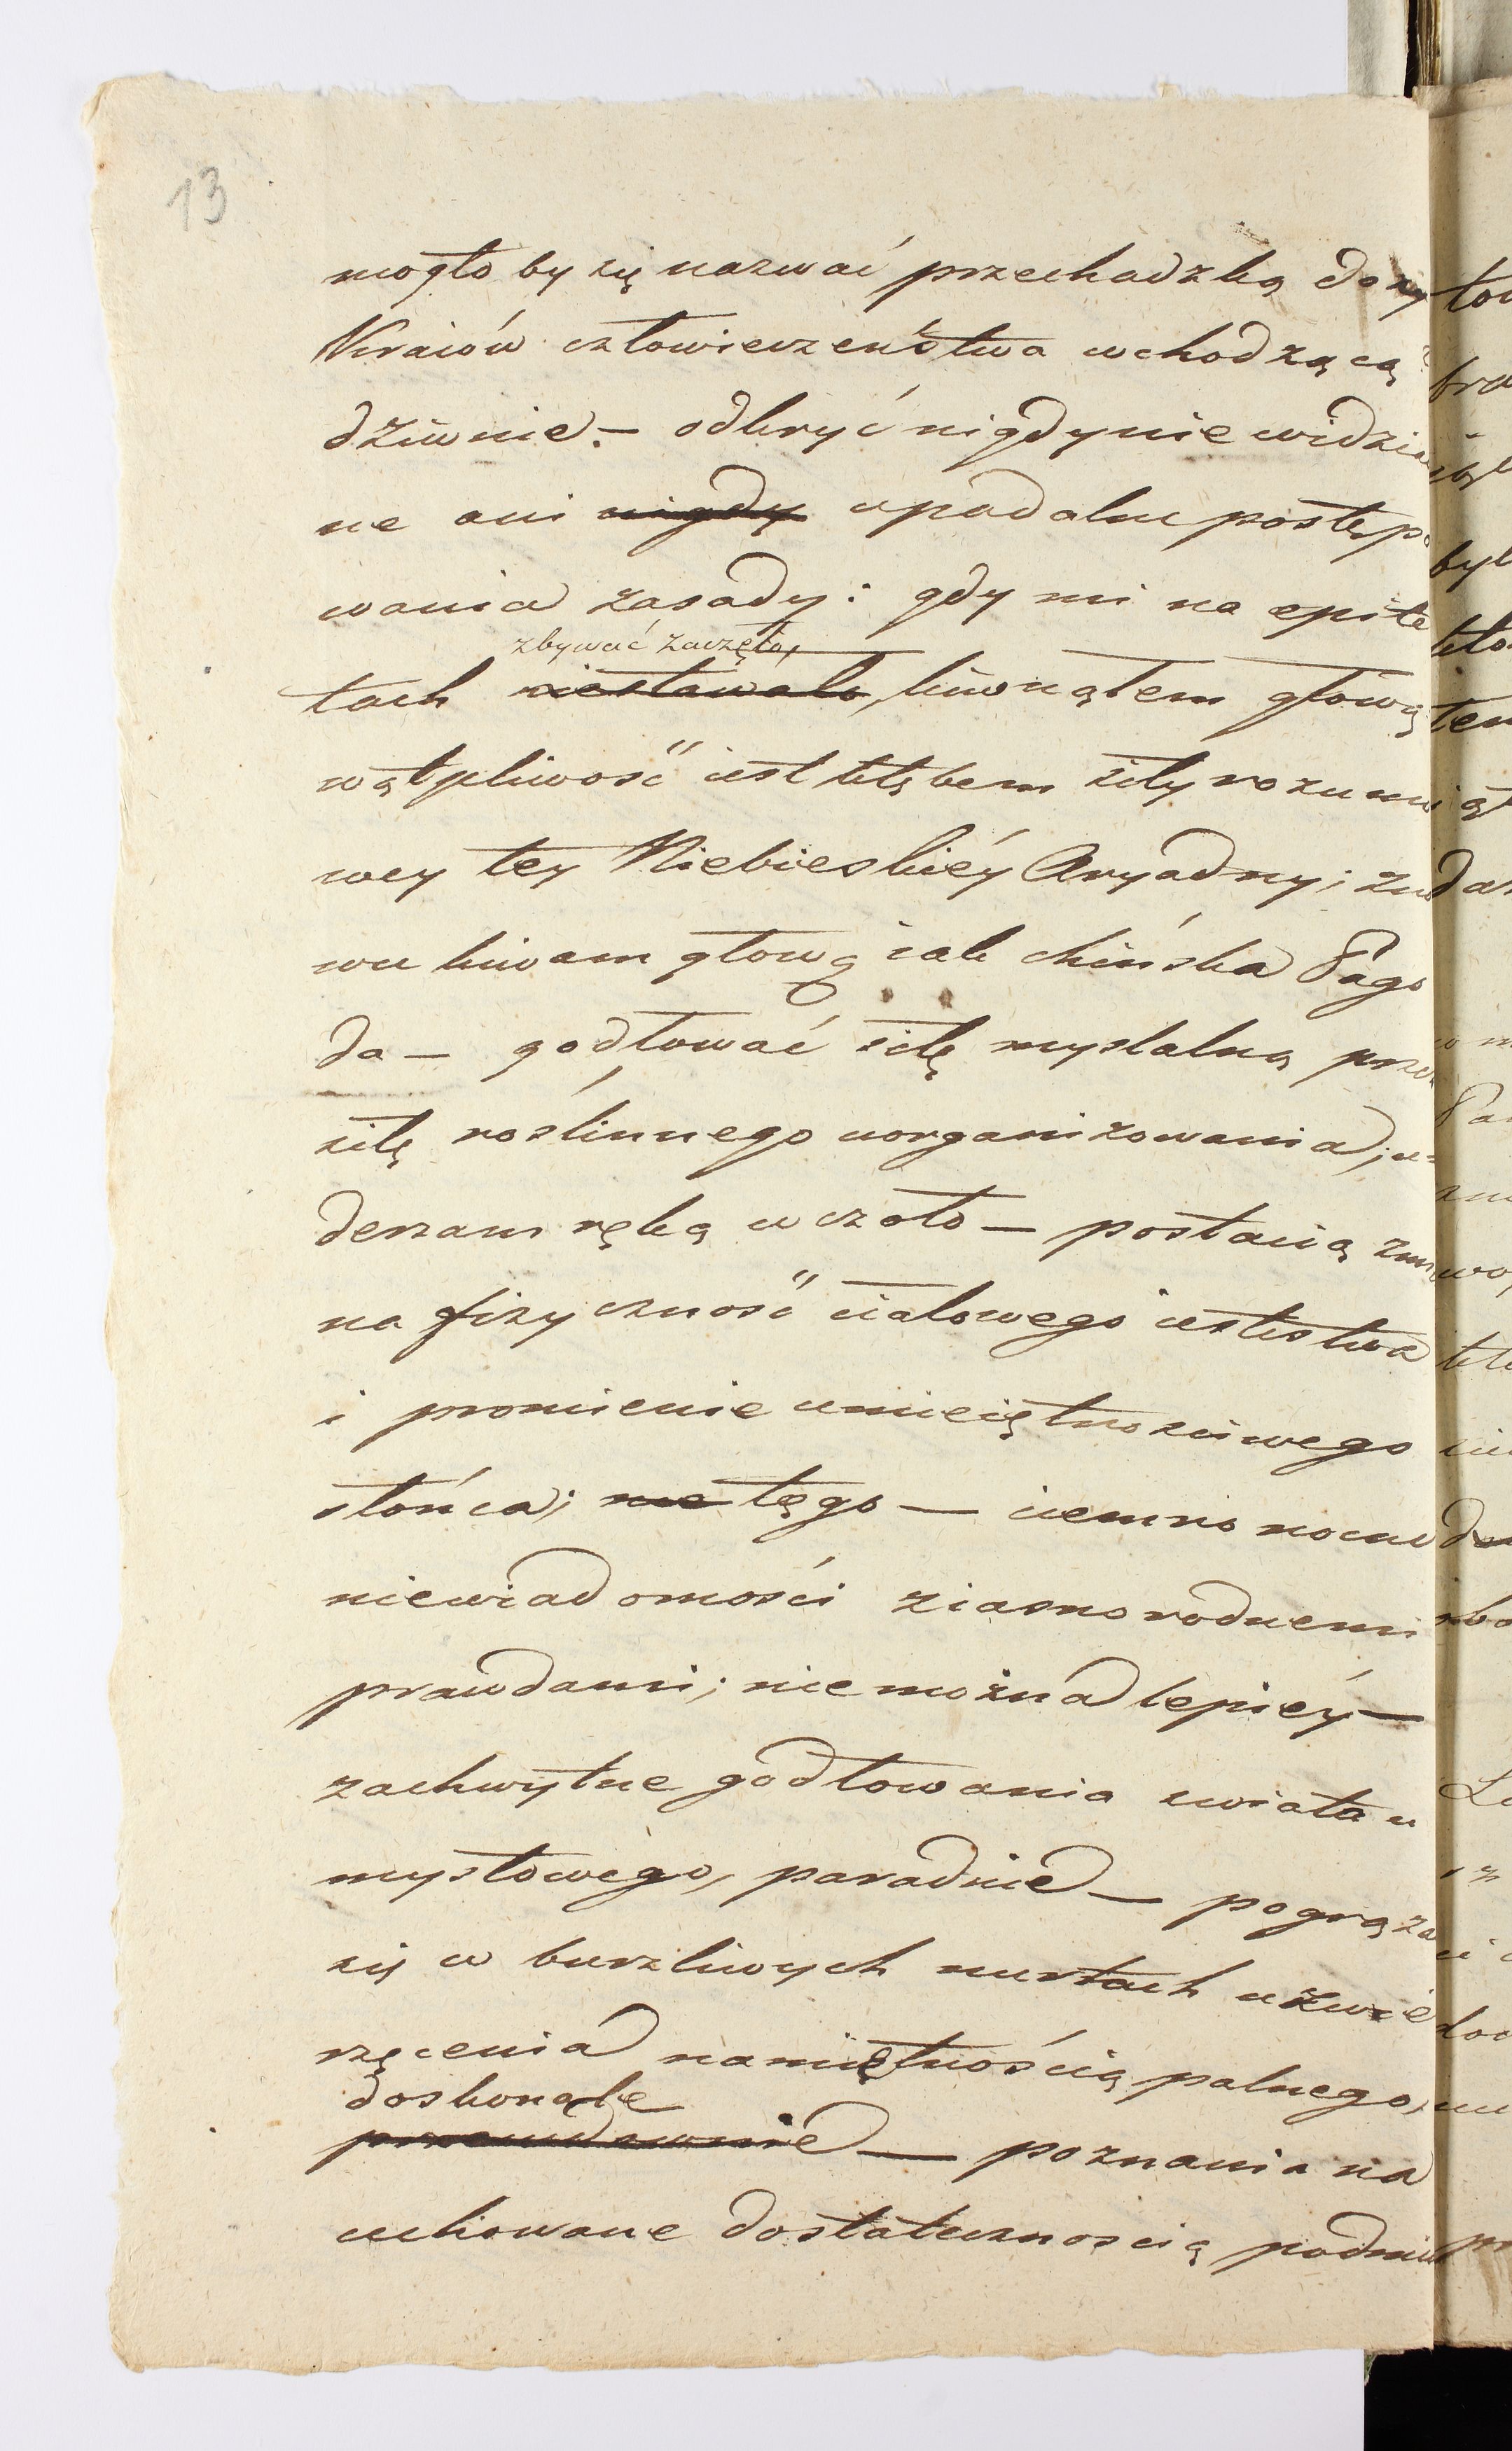 13
mogło by się nazwać przechadzką do
Kraiów człowieczeństwa wchodzącą
dziwnie. – odkryć nigdy nie widzia
ne ani nigdy upodalne postępo
wania zasady: gdy mi na epite
zbywać zaczęło,
tach niestawało, kiwnąłem głową
wątpliwość iest kłębem siły rozumo
wey tey Niebieskiéy Aryadny; zno
wu kiwam głową iak chińska Pago
da – godłować siłę myslalną przez
siłę roślinnego uorganizowania; u-
derzam ręką w czoło – postacią
na fizyczność ciałowego iestestwa
i promienie umieiętnosciowego
słońca; tęgo – ciemno nocne
niewiadomości ziarnorodnemi
prawdami; nie można lepiéy –
zachwytne godłowania swiata u
mysłowego, paradnie – pogrąża
się w burzliwych nurtach uzwie
rzęcenia namiętnością palnego,
doskonale
– poznania na
cechowane dostatecznoscią podmio